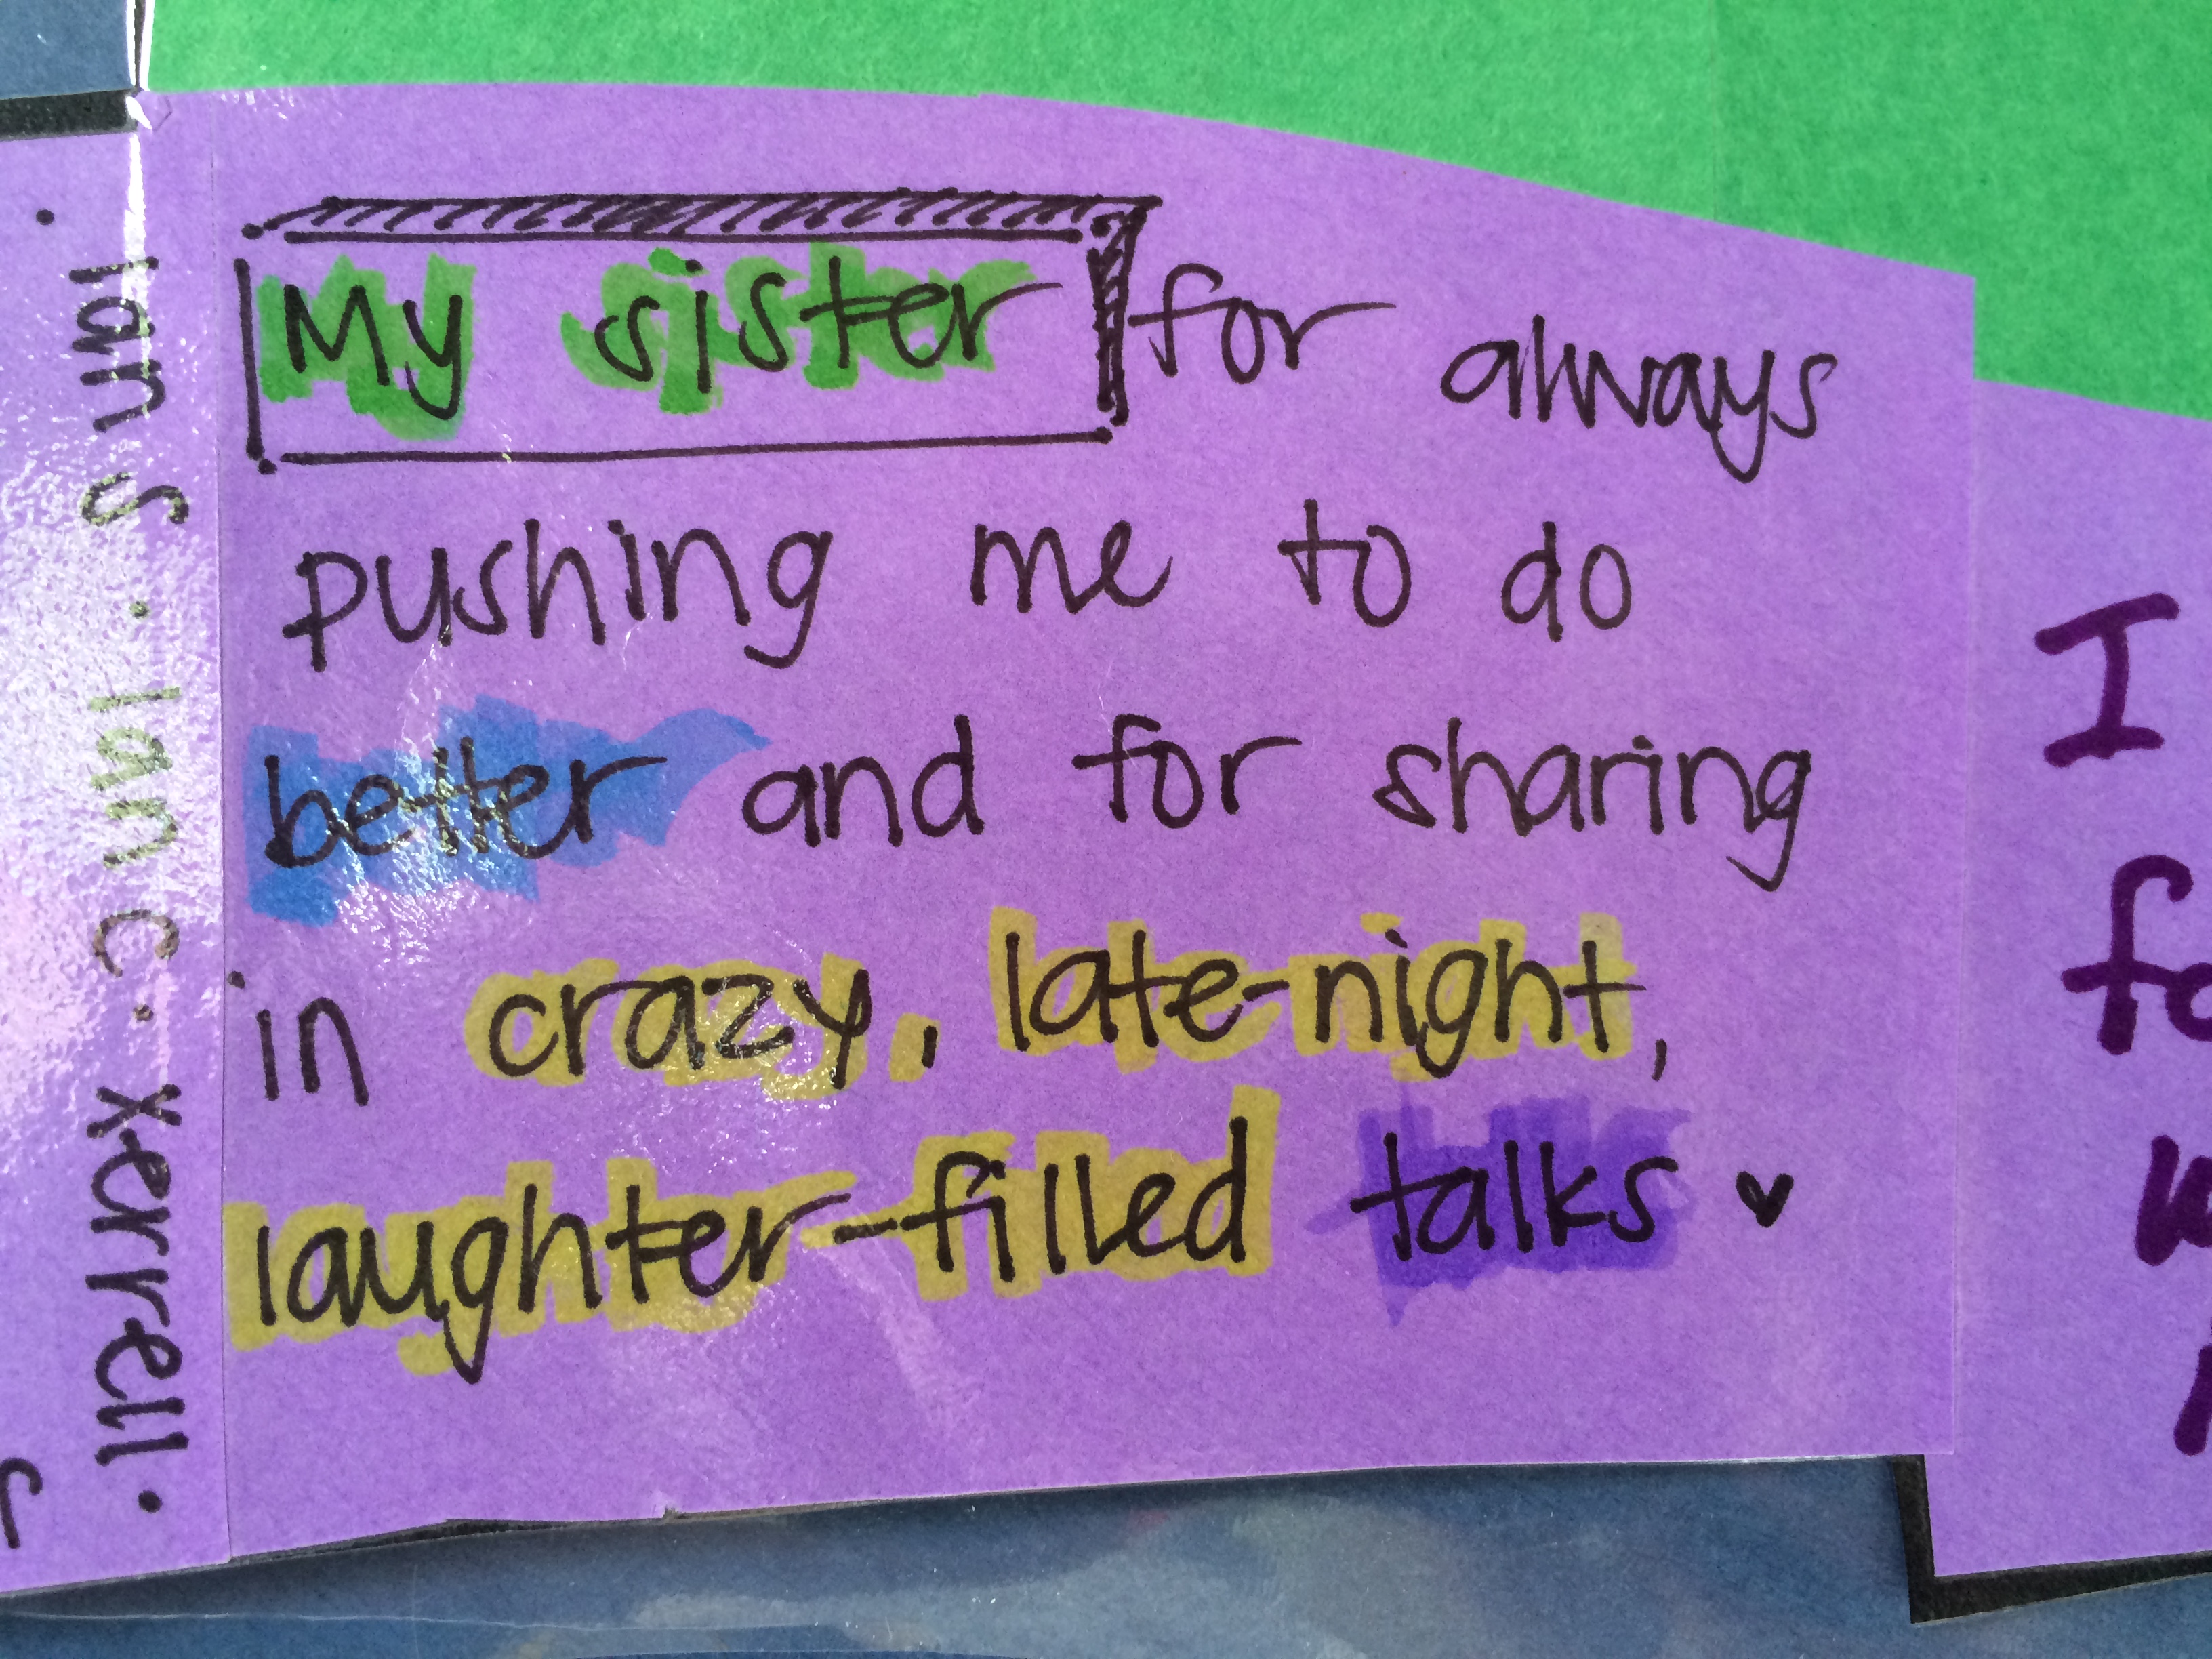 My sister for always
pushing me to do
better and for sharing
in crazy, late-night,
laughter-filled talks ♥
· Ian S. Ian C. Xerrell.
I